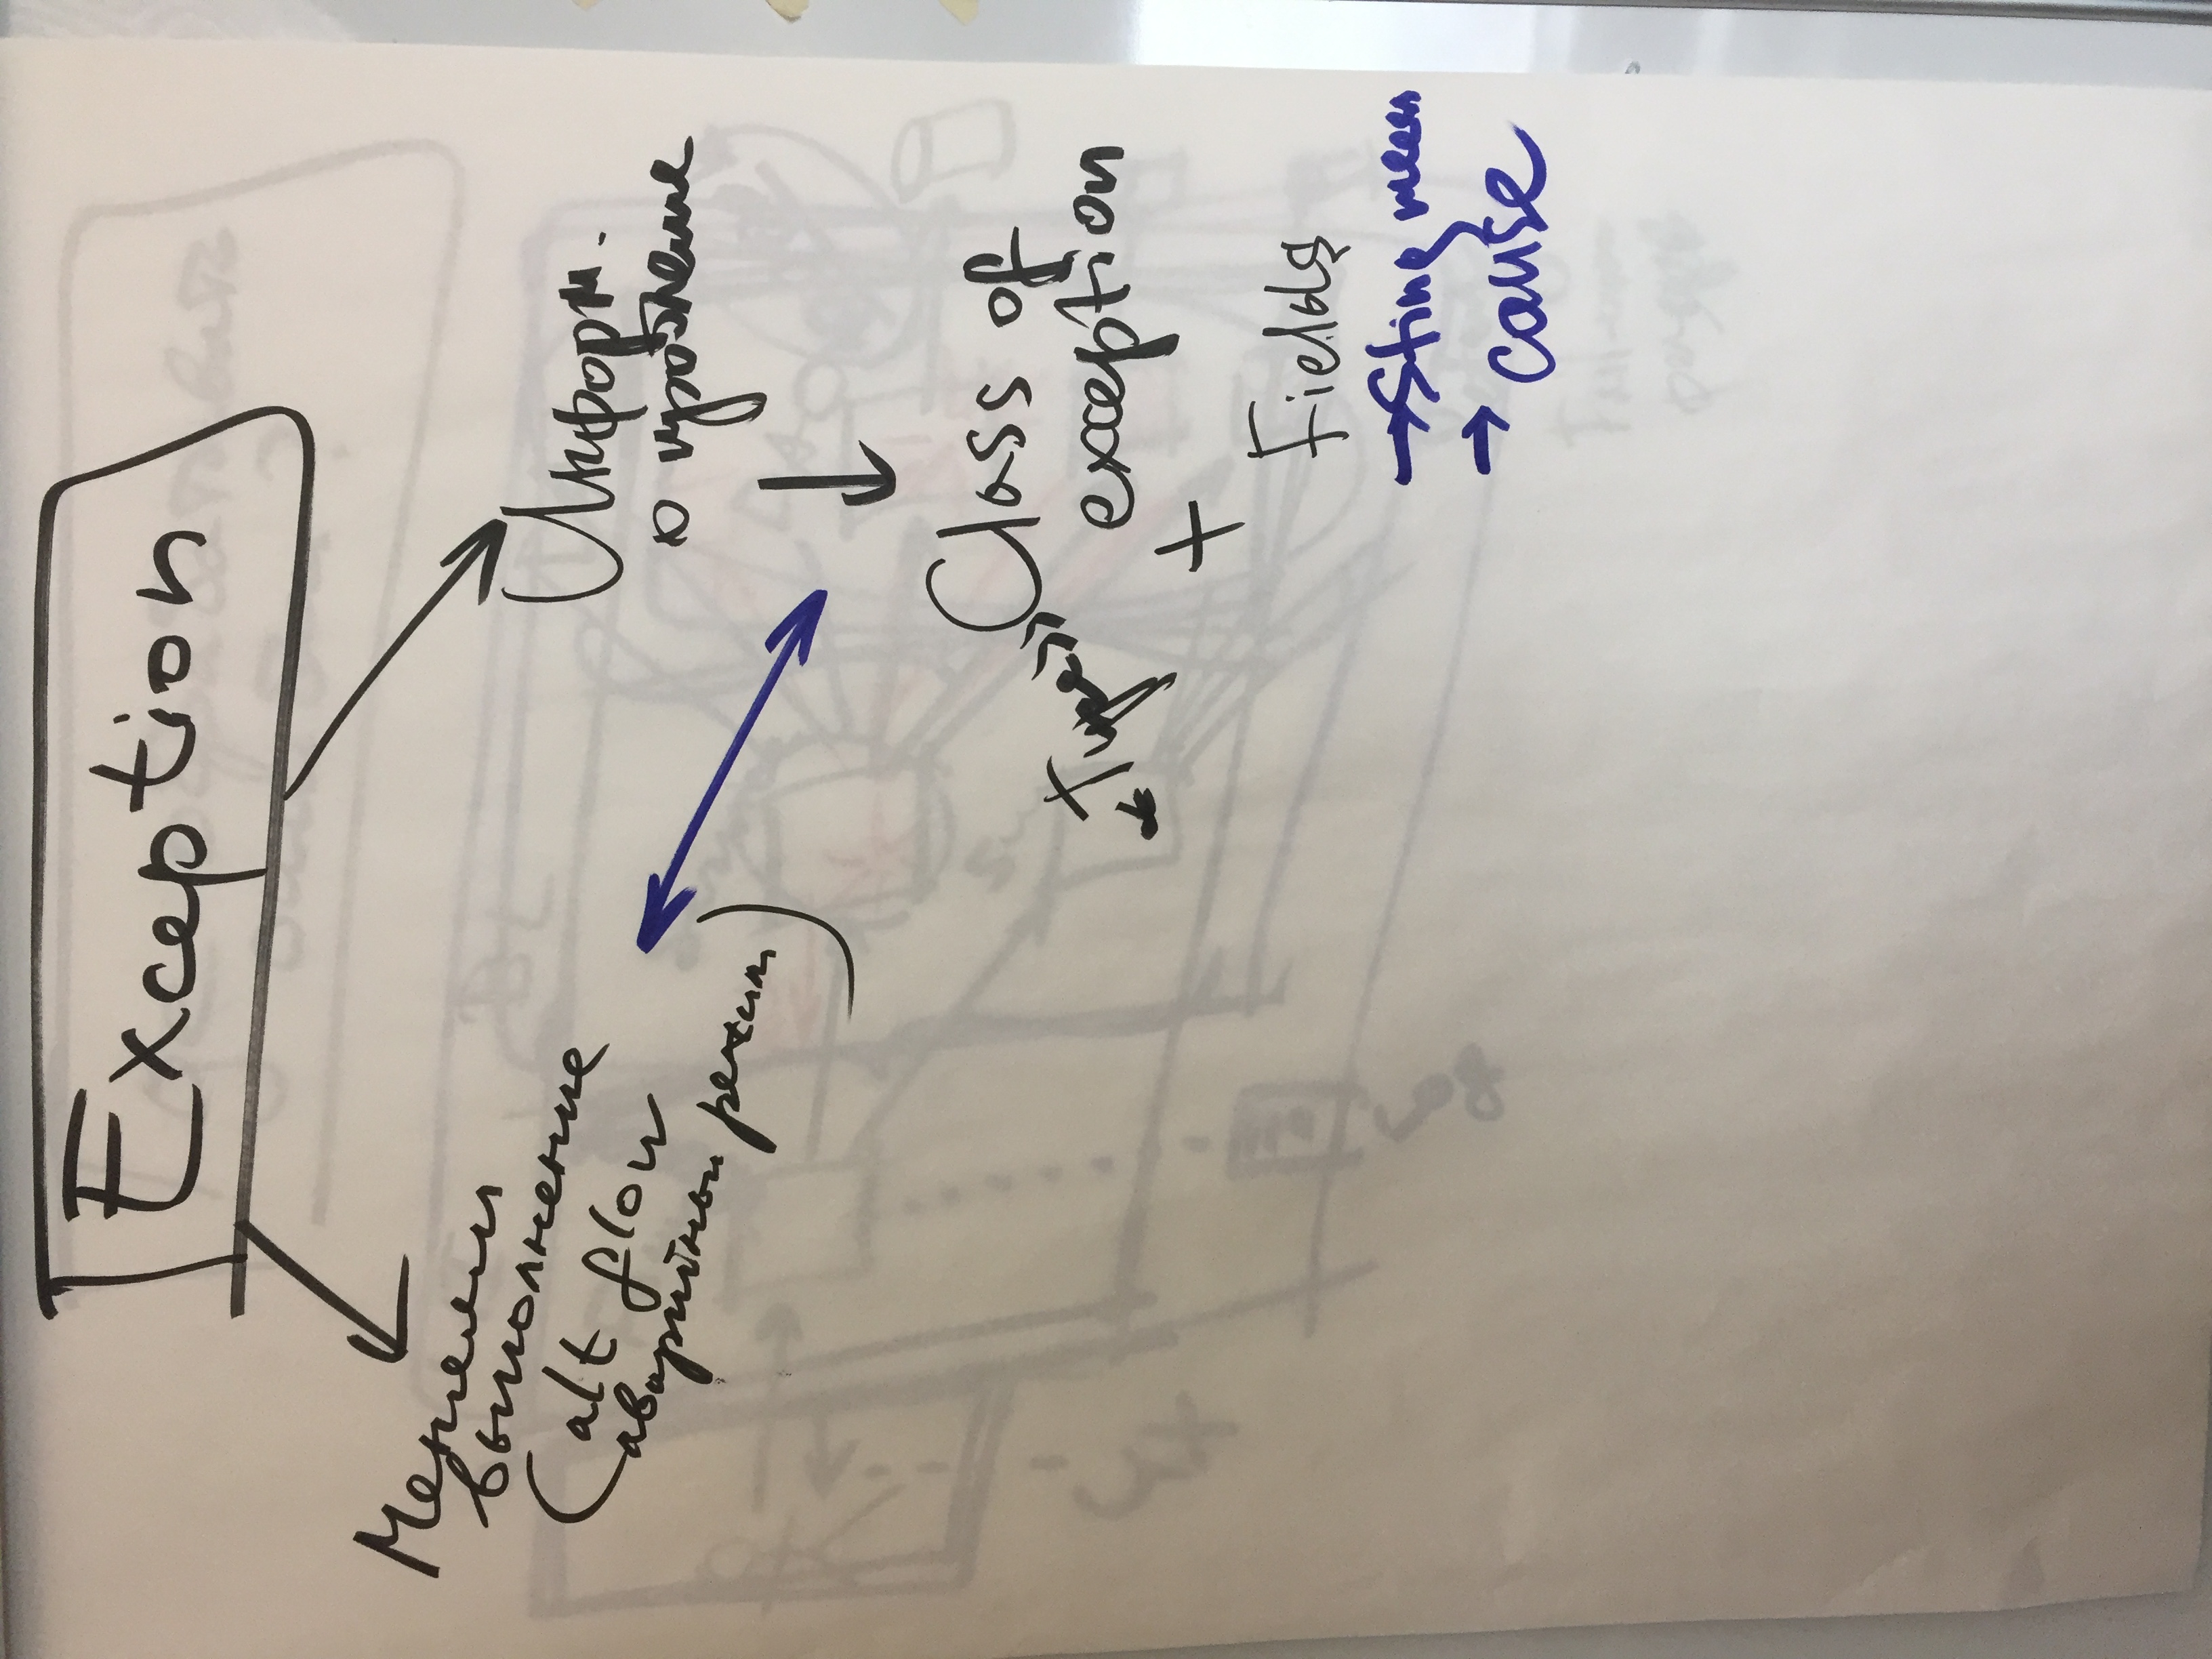 Exception
Меняем
выполнение
(alt flow
аварийный режим)
Информ.
о проблеме
Class of
exception
"Type"
+
Fields
→ Sting
→ cause